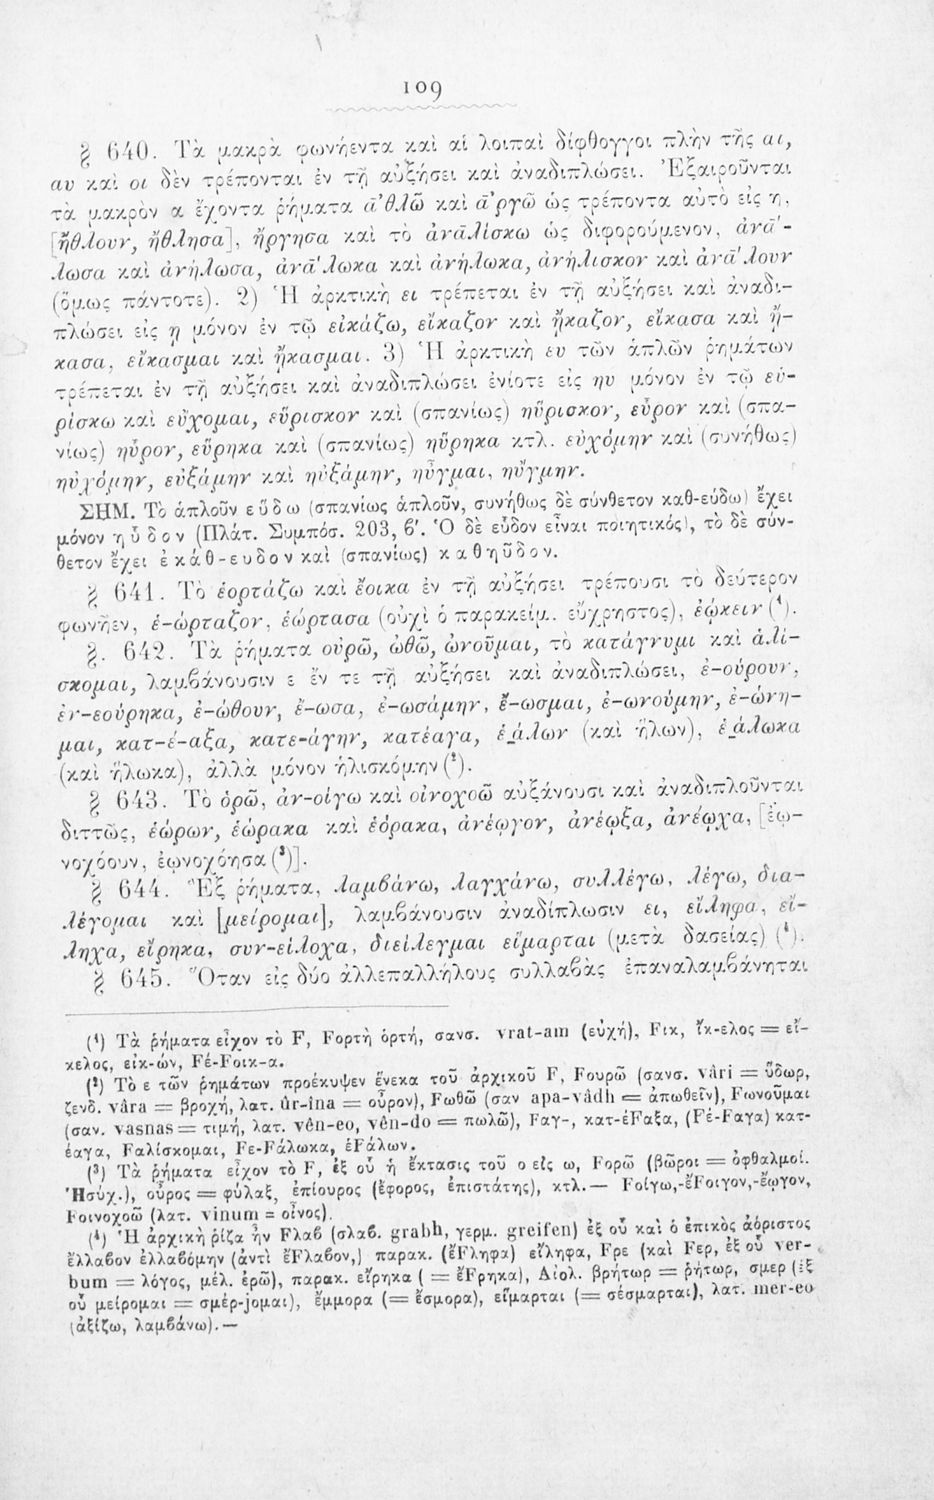 109
§ 640. Τὰ μακρὰ φωνήεντα καὶ αἱ λοιπαὶ δίφθογγοι πλὴν τῆς αι,
αυ καὶ οι δὲν τρέπονται ἐν τῇ αὐξήσει καὶ ἀναδιπλώσει. Ἐξαιροῦνται
τὰ μακρὸν α ἔχοντα ῥήματα ᾱ᾽θλῶ καὶ ᾱ᾽ργῶ ὡς τρέποντα αὐτὸ εἰς η,
[ἤθλουν, ἤθλησα], ἤργησα καὶ τὸ ἀνᾱλίσκω ὡς διφορούμενον, ἀνᾱ΄-
λωσα καὶ ἀνήλωσα, ἀνᾱ΄λωκα καὶ ἀνήλωκα, ἀνήλισκον καὶ ἀνᾱ΄λουν
(ὅμως πάντοτε). 2) Ἡ ἀρκτικὴ ει τρέπεται ἐν τῇ αὐξήσει καὶ ἀναδι-
πλώσει εἰς ῃ μόνον ἐν τῷ εἰκάζω, εἴκαζον καὶ ᾔκαζον, εἴκασα καὶ ᾔ-
κασα, εἴκασμαι καὶ ᾔκασμαι. 3) Ἡ ἀρκτικὴ ευ τῶν ἁπλῶν ῥημάτων
τρέπεται ἐν τῇ αὐξήσει καὶ ἀναδιπλώσει ἐνίοτε εἰς ηυ μόνον ἐν τῷ εὑ-
ρίσκω καὶ εὔχομαι, εὕρισκον καὶ (σπανίως) ηὕρισκον, εὗρον καὶ (σπα-
νίως) ηὗρον, εὕρηκα καὶ (σπανίως) ηὕρηκα κτλ. εὐχόμην καὶ (συνήθως)
ηὐχόμην, εὐξάμην καὶ ηὐξάμην, ηὖγμαι, ηὔγμην.
ΣΗΜ. Τὸ ἁπλοῦν εὕδω (σπανίως ἁπλοῦν, συνήθως δὲ σύνθετον καθ-εύδω) ἔχει
μόνον ηὗδον (Πλάτ. Συμπόσ. 203, β'. Ὁ δὲ εὗδον εἶναι ποιητικός), τὸ δὲ σύν-
θετον ἔχει ἐκάθ-ευδον καὶ (σπανίως) καθηῦδον.
§ 641. Τὸ ἑορτάζω καὶ ἔοικα ἐν τῇ αὐξήσει τρέπουσι τὸ δεύτερον
φωνῆεν, ἑ-ώρταζον, ἑώρτασα (οὐχὶ ὁ παρακείμ. εὔχρηστος), ἐῴκειν (¹).
§. 642. Τὰ ῥήματα οὐρῶ, ὠθῶ, ὠνοῦμαι, τὸ κατάγνυμι καὶ ἁλί-
σκομαι, λαμβάνουσιν ε ἔν τε τῇ αὐξήσει καὶ ἀναδιπλώσει, ἐ-ούρουν,
ἐν-εούρηκα, ἐ-ώθουν, ἔ-ωσα, ἐ-ωσάμην, ἔ-ωσμαι, ἐ-ωνούμην, ἐ-ώνη-
μαι, κατ-έ-αξα, κατε-άγην, κατέαγα, ἑ‿άλων (καὶ ἥλων), ἑ‿άλωκα
(καὶ ἥλωκα), ἀλλὰ μόνον ἡλισκόμην (²).
§ 643. Τὸ ὁρῶ, ἀν-οίγω καὶ οἰνοχοῶ αὐξάνουσι καὶ ἀναδιπλοῦνται
διττῶς, ἑώρων, ἑώρακα καὶ ἑόρακα, ἀνέῳγον, ἀνέῳξα, ἀνέῳχα, [ἐῳ-
νοχόουν, ἐῳνοχόησα (³)].
§ 644. Ἓξ ῥήματα, λαμβάνω, λαγχάνω, συλλέγω, λέγω, δια-
λέγομαι καὶ [μείρομαι], λαμβάνουσιν ἀναδίπλωσιν ει, εἴληφα, εἴ-
ληχα, εἴρηκα, συν-είλοχα, διείλεγμαι εἵμαρται (μετὰ δασείας) (⁴).
§ 645. Ὅταν εἰς δύο ἀλλεπαλλήλους συλλαβὰς ἐπαναλαμβάνηται
(¹) Τὰ ῥήματα εἶχον τὸ F, Fορτὴ ὁρτή, σανσ. vrat-am (εὐχή), Fικ, ἴκ-ελος = εἴ-
κελος, εἰκ-ών, Fέ-Fοικ-α.
(²) Τὸ ε τῶν ῥημάτων προέκυψεν ἕνεκα τοῦ ἀρχικοῦ F, Fουρῶ (σανσ. vâri = ὕδωρ,
ζενδ. vâra = βροχή, λατ. ûr-îna = οὖρον), Fωθῶ (σαν apa-vâdh = ἀπωθεῖν), Fωνοῦμαι
(σαν. vasnas = τιμή, λατ. vên-eo, vên-do = πωλῶ), Fαγ-, κατ-έFαξα, (Fέ-Fαγα) κατ-
έαγα, Fαλίσκομαι, Fε-Fάλωκα, ἐFάλων.
(³) Τὰ ῥήματα εἶχον τὸ F, ἐξ οὗ ἡ ἔκτασις τοῦ ο εἰς ω, Fορῶ (βῶροι = ὀφθαλμοί.
Ἡσύχ.), οὖρος = φύλαξ, ἐπίουρος (ἔφορος, ἐπιστάτης), κτλ.— Fοίγω,-ἔFοιγον,-ἔῳγον,
Fοινοχοῶ (λατ. vinum = οἶνος).
(⁴) Ἡ ἀρχικὴ ῥίζα ἦν Fλαβ (σλαβ. grabh, γερμ. greifen) ἐξ οὗ καὶ ὁ ἐπικὸς ἀόριστος
ἔλλαβον ἐλλαβόμην (ἀντὶ ἔFλαβον,) παρακ. (ἔFληφα) εἴληφα, Fρε (καὶ Fερ, ἐξ οὗ ver-
bum = λόγος, μέλ. ἐρῶ), παρακ. εἴρηκα ( = ἔFρηκα), Αἰολ. βρήτωρ = ῥήτωρ, σμερ (ἐξ
οὗ μείρομαι = σμέρ-jομαι), ἔμμορα (= ἔσμορα), εἵμαρται (= σέσμαρται), λατ. mer-eo
(ἀξίζω, λαμβάνω).—